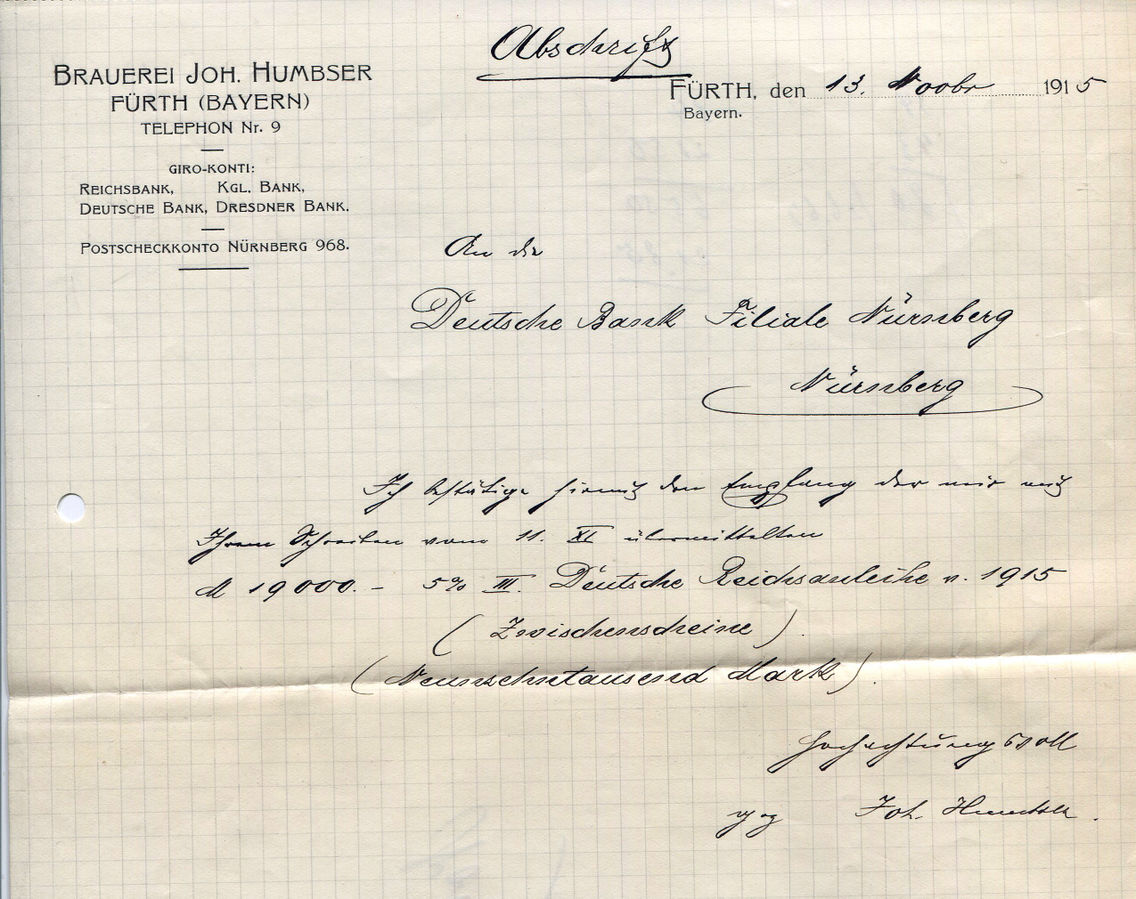 Abschrift
BRAUEREI JOH. HUMBSER
FÜRTH (BAYERN)
TELEPHON Nr. 9
GIRO-KONTI:
REICHSBANK, KGL. BANK,
DEUTSCHE BANK, DRESDNER BANK.
POSTSCHECKKONTO NÜRNBERG 968.
FÜRTH, den 13. Novbr 1915
Bayern.
An die
Deutsche Bank Filiale Nürnberg
Nürnberg
Ich bestätige hiemit den Empfang der mir mit
Ihrem Schreiben vom 11. XI übermittelten
M 19000.- 5% III. Deutsche Reichsanleihe v. 1915
(Zwischenscheine).
(Neunzehntausend Mark).
Hochachtungsvoll
gez Joh. Humbser.